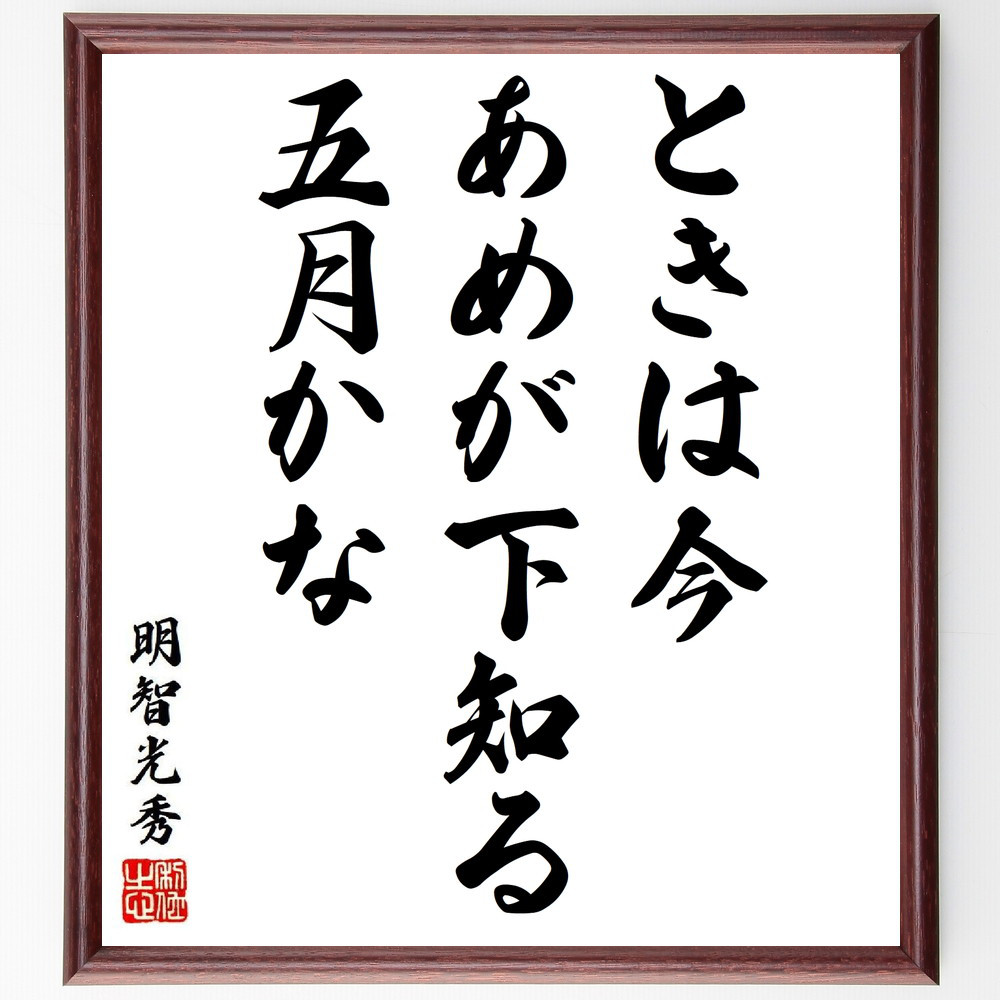 ときは今
あめが下知る
五月かな
明智光秀